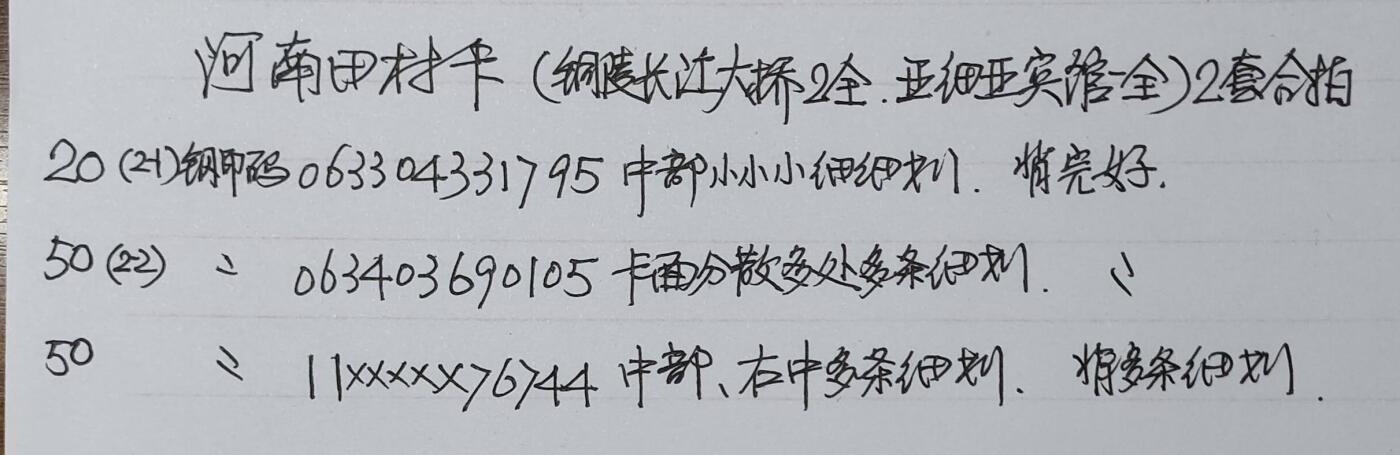 河南田村卡(铜陵长江大桥2全.亚细亚宾馆一全)2套合拍
20(2-1)钢印码063304331795中部小小小细细划.背完好.
50(2-2) 〃 063403690105卡面分散多处多条细划. 〃
50 〃 11×××××76744中部、右中多条细划.背多条细划.